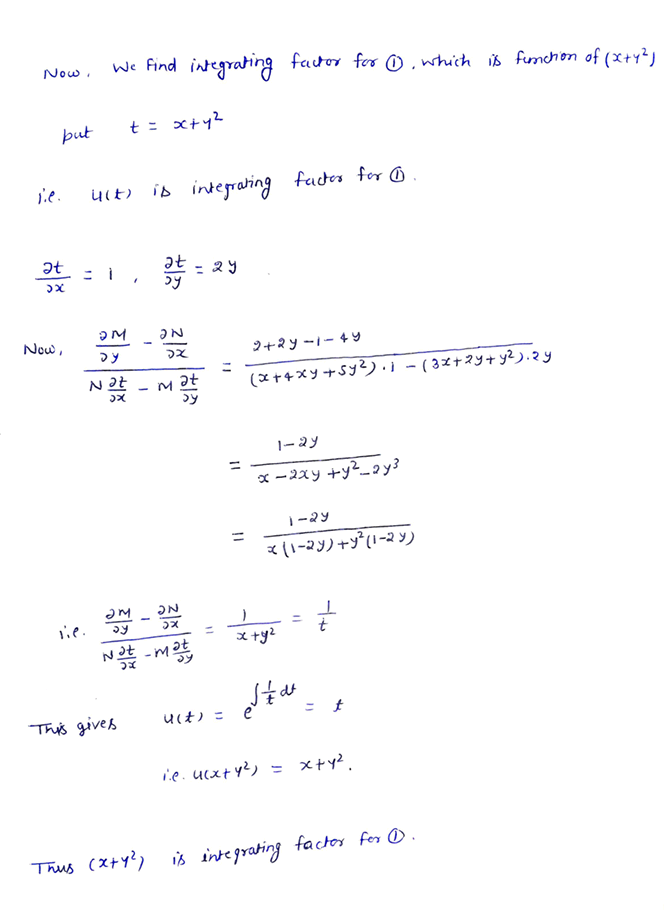 Now, We find integrating factor for ①, which is function of (x+y²)
put t = x+y²
i.e. u(t) is integrating factor for ①.
∂t/∂x = 1, ∂t/∂y = 2y
Now, (∂M/∂y - ∂N/∂x)/(N ∂t/∂x - M ∂t/∂y) = (2+2y-1-4y)/((x+4xy+5y²)·1 - (3x+2y+y²)·2y)
= (1-2y)/(x-2xy+y²-2y³)
= (1-2y)/(x(1-2y)+y²(1-2y))
i.e. (∂M/∂y - ∂N/∂x)/(N ∂t/∂x - M ∂t/∂y) = 1/(x+y²) = 1/t
This gives u(t) = e^(∫ 1/t dt) = t
i.e. u(x+y²) = x+y².
Thus (x+y²) is integrating factor for ①.